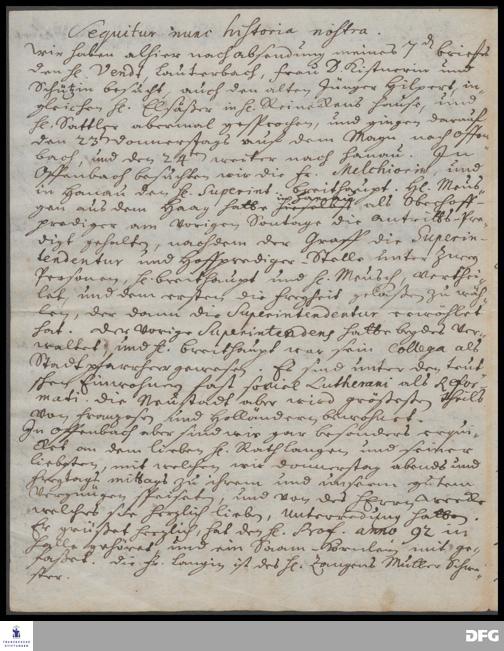 Sequitur nunc historia nostra.
Wir haben alhier nach absendung meines 7 briefes
den H. Vendt, Lauterbach, Frau D. Kistnerin und
Schützin besucht, auch den alten Jünger Hilpert, in-
gleichen H. Elsässer in H. Reinekens Hause, und
H. Sattler abermal gesprochen, und gingen darauf
den 23 donnerstags auf dem Mayn nach Offen-
bach, und den 24 weiter nach Hanau. In
Offenbach besuchten wir die Fr. Melchiorin, und
in Hanau den H. Superint. Breithaupt. H. Meus-
gen aus dem Haag hatte als Oberhoff-
prediger am vorigen Sontage die Antritts-Pre-
digt gehalten, nachdem der Graff die Superin-
tendentur und Hoffprediger-Stelle unter zwey
Personen, H. Breithaupt und H. Meusch, verthei-
let, und dem ersten die freyheit gelassen zu wäh-
len, der dann die Superintendentur erwählet
hat. Der vorige Superintendens hatte beydes ver-
waltet, und H. Breithaupt war sein Collega als
Stadtpfarrherr gewesen. Es sind unter den teut-
schen Einwohnern fast soviel Lutherani als Refor-
mati. die Neustadt aber wird grösten Theils
von Franzosen und Holländern bewohnet.
In Offenbach aber sind wir gar besonders erqui-
cket an dem lieben H. Rath Langen und seiner
liebsten, mit welchen wir donnerstag abends und
freytags mittags zu ihrem und unserm gutem
Vergnügen speiseten, und von des Herrn wercke
welches sie herzlich lieben, Unterredung hatten.
Er grüsset herzlich, hat den H. Prof. anno 92 in
Halle gehöret und ein Saam-Körnlein mit ge-
fasset. die Fr. Langin ist des H. Langens Müller Schwe-
ster.
FRANCKESCHE STIFTUNGEN
DFG